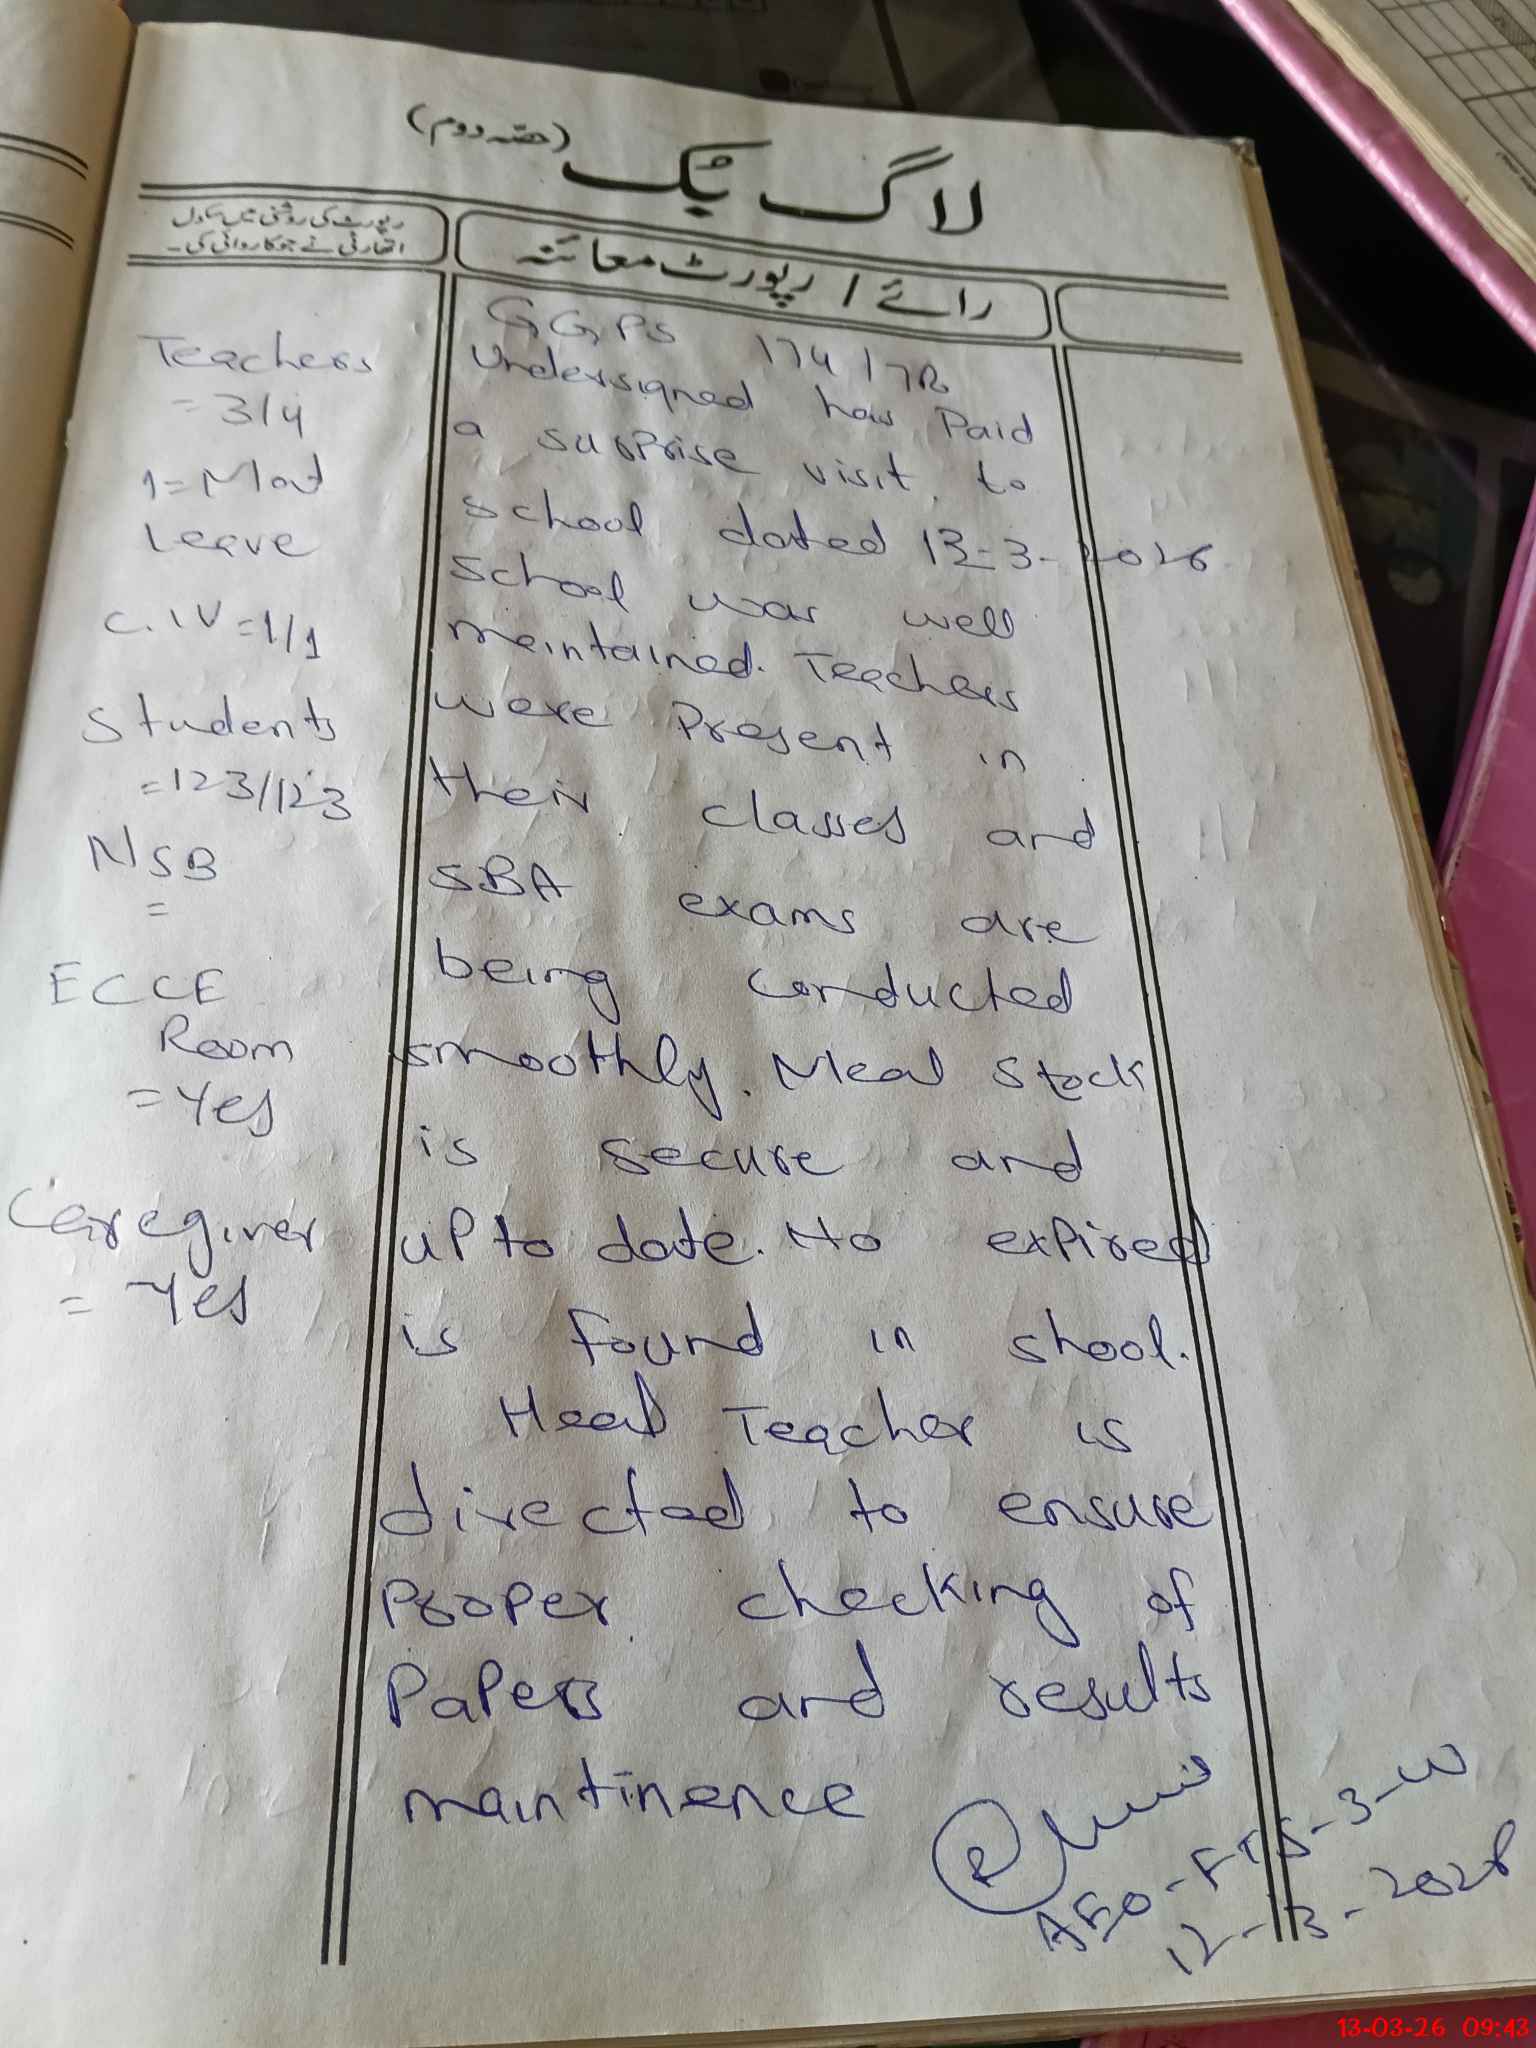 لاگ بُک (حصّہ دوم)
رپورٹ کی روشنی میں مجاز
اتھارٹی نے جو کاروائی کی۔
رائے / رپورٹ معائنہ
Teachers
= 3/4
1= Mat
Leave
C. IV = 1/1
Students
= 123/123
NSB
=
ECCE
Room
= Yes
Caregiver
= Yes
GGPS 174/7R
Undersigned has Paid
a surprise visit to
school dated 12-3-2026
School was well
maintained. Teachers
were Present in
their classes and
SBA exams are
being conducted
smoothly. Meal stock
is secure and
up to date. No expired
is found in shool.
Head Teacher is
directed to ensure
Proper checking of
Papers and results
maintinence
AEO-FTS-3-W
12-3-2026
13-03-26 09:43